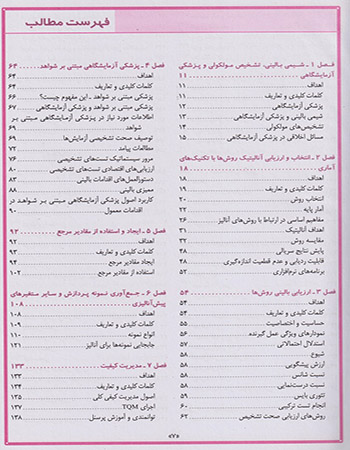 فهرست مطالب
فصل ۱ ـ شیمی بالینی، تشخیص مولکولی و پزشکی
آزمایشگاهی ۱۱
اهداف ۱۱
کلمات کلیدی و تعاریف ۱۱
پزشکی آزمایشگاهی ۱۲
شیمی بالینی و پزشکی آزمایشگاهی ۱۳
تشخیص‌های مولکولی ۱۴
مسائل اخلاقی در پزشکی آزمایشگاهی ۱۵
فصل ۲ ـ انتخاب و ارزیابی آنالیتیک روش‌ها با تکنیک‌های
آماری ۱۸
اهداف ۱۸
کلمات کلیدی و تعاریف ۱۹
انتخاب روش ۲۰
آمار پایه ۲۲
مفاهیم اساسی در ارتباط با روش‌های آنالیز ۲۶
اهداف آنالیتیک ۳۱
مقایسه روش ۳۲
پایش نتایج سریالی ۴۸
قابلیت ردیابی و عدم قطعیت اندازه‌گیری ۴۸
برنامه‌های نرم‌افزاری ۵۲
فصل ۳ ـ ارزیابی بالینی روش‌ها ۵۴
اهداف ۵۴
کلمات کلیدی و تعاریف ۵۴
حساسیت و اختصاصیت ۵۵
نمودارهای ویژگی عمل گیرنده ۵۶
استدلال احتمالاتی ۵۷
شیوع ۵۸
ارزش پیشگویی ۵۸
نسبت شانس ۵۸
نسبت درست‌نمایی ۵۸
تئوری بایس ۵۹
انجام تست ترکیبی ۶۰
روش‌های ارزیابی صحت تشخیص ۶۲
فصل ۴ ـ پزشکی آزمایشگاهی مبتنی بر شواهد ۶۴
اهداف ۶۴
کلمات کلیدی و تعاریف ۶۴
پزشکی مبتنی بر شواهد ـ این مفهوم چیست؟ ۶۶
پزشکی مبتنی بر شواهد و پزشکی آزمایشگاهی ۶۷
اطلاعات مورد نیاز در پزشکی آزمایشگاهی مبتنی بر
شواهد ۶۹
توصیف صحت تشخیصی آزمایش‌ها ۶۹
مطالعات پیامد ۷۲
مرور سیستماتیک تست‌های تشخیصی ۷۶
ارزیابی‌های اقتصادی تست‌های تشخیصی ۸۰
دستورالعمل‌های اقدامات بالینی ۸۳
ممیزی بالینی ۸۸
کاربرد اصول پزشکی آزمایشگاهی مبتنی بر شواهد در
اقدامات معمول ۹۰
فصل ۵ ـ ایجاد و استفاده از مقادیر مرجع ۹۲
اهداف ۹۲
کلمات کلیدی و تعاریف ۹۳
ایجاد مقادیر مرجع ۹۴
استفاده از مقادیر مرجع ۱۰۲
فصل ۶ ـ جمع‌آوری نمونه پردازش و سایر متغیرهای
پیش‌آنالیزی ۱۰۸
اهداف ۱۰۸
کلمات کلیدی و تعاریف ۱۰۹
انواع نمونه ۱۱۰
جابجایی نمونه‌ها برای آنالیز ۱۲۱
فصل ۷ ـ مدیریت کیفیت ۱۳۳
اهداف ۱۳۳
کلمات کلیدی و تعاریف ۱۳۴
اصول مدیریت کیفی کلی ۱۳۵
اجرای TQM ۱۳۷
توانمندی و آموزش پرسنل ۱۳۸